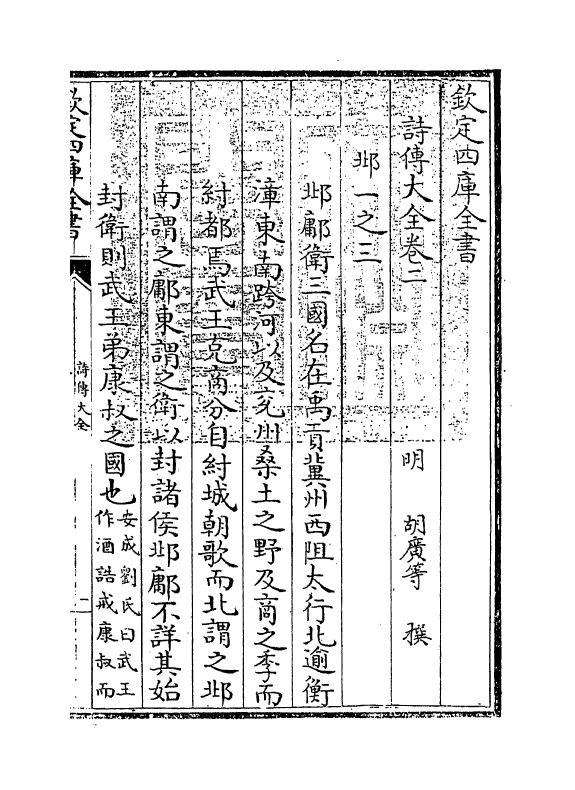 欽定四庫全書
詩傳大全卷二
明　胡廣等　撰
邶一之三
邶鄘衛三國名在禹貢冀州西阻太行北逾衡
漳東南跨河以及兗州桑土之野及商之季而
紂都焉武王克商分自紂城朝歌而北謂之邶
南謂之鄘東謂之衛以封諸侯邶鄘不詳其始
封衛則武王弟康叔之國也
安成劉氏曰武王
作酒誥戒康叔而
欽定四庫全書
詩傳大全